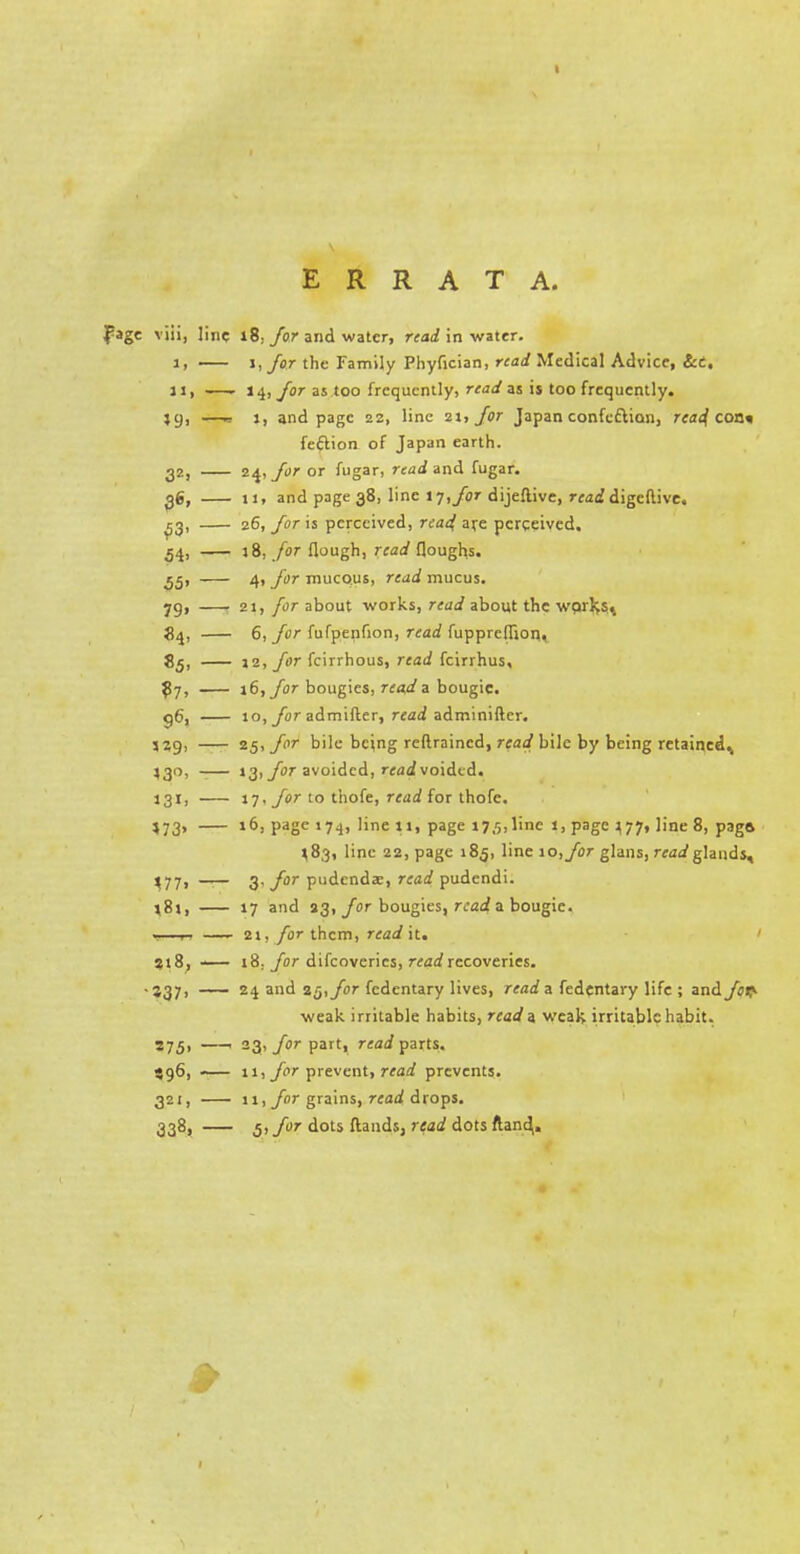 ERRATA.
Page viii, line 18, for and water, read in water.
1, —— 1, for the Family Phyſician, read Medical Advice, &c.
11, —— 14, for as too frequently, read as is too frequently.
19, —— 1, and page 22, line 21, for Japan confeƈtion, read con-
feƈtion of Japan earth.
32, —— 24, for or ſugar, read and ſugar.
36, —— 11, and page 38, line 17, for dijeſtive, read digeſtive.
53, —— 26, for is perceived, read are perceived.
54, —— 18, for ſlough, read ſloughs.
55, —— 4, for mucous, read mucus.
79, —— 21, for about works, read about the works,
84, —— 6, for ſuſpenſion, read ſuppreſſion,
85, —— 12, for ſcirrhous, read ſcirrhus,
87, —— 16, for bougies, read a bougie.
96, —— 10, for admiſter, read adminiſter.
129, —— 25, for bile being reſtrained, read bile by being retained,
130, —— 13, for avoided, read voided.
131, —— 17, for to thoſe, read for thoſe.
173, —— 16, page 174, line 11, page 175, line 1, page 177, line 8, page
183, line 22, page 185, line 10, for glans, read glands,
177, —— 3, for pudendæ, read pudendi.
181, —— 17 and 23, for bougies, read a bougie.
—— —— 21, for them, read it.
218, —— 18, for diſcoveries, read recoveries.
237, —— 24 and 25, for ſedentary lives, read a ſedentary life ; and for
weak irritable habits, read a weak irritable habit.
275, —— 23, for part, read parts.
296, —— 11, for prevent, read prevents.
321, —— 11, for grains, read drops.
338, —— 5, for dots ſtands, read dots ſtand,